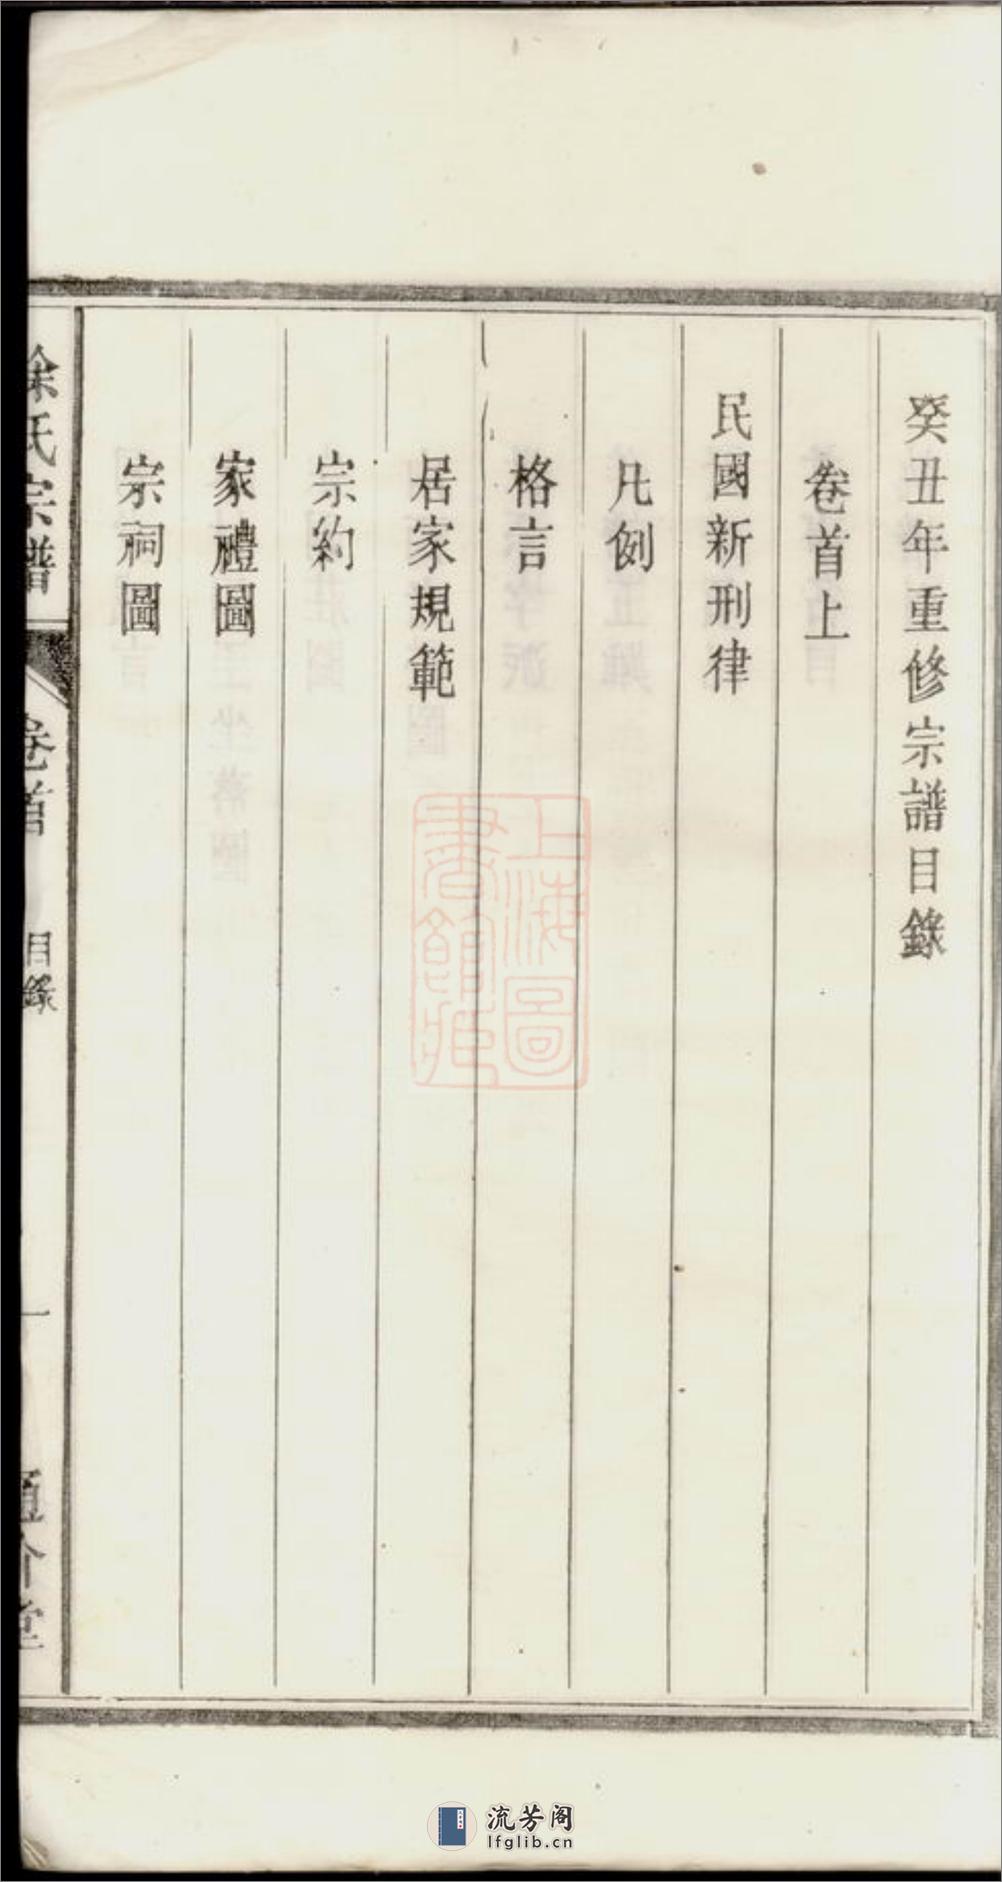 癸丑年重修宗譜目錄
卷首上
民國新刑律
凡例
格言
居家規範
宗約
家禮圖
宗祠圖
徐氏宗譜
卷首
目錄
一
通介堂
上海圖
書館藏
流芳阁
lfglib.cn